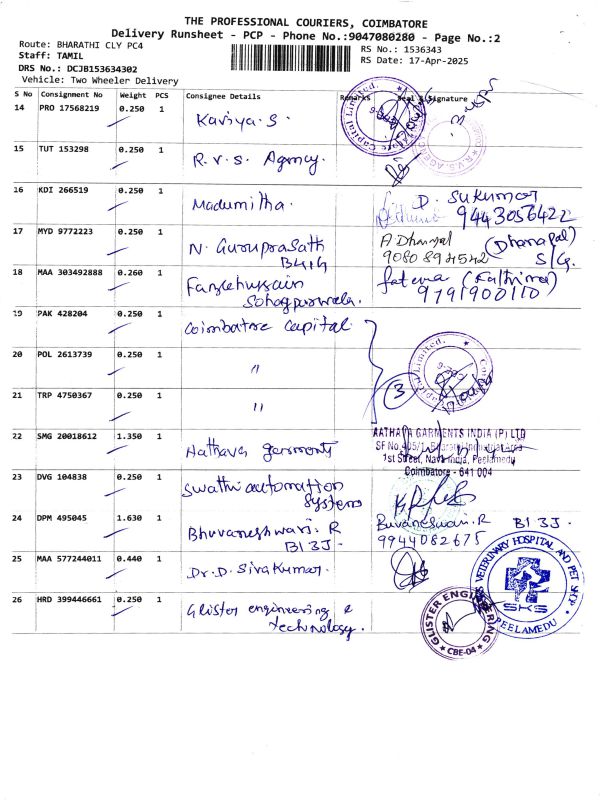 THE PROFESSIONAL COURIERS, COIMBATORE
Delivery Runsheet - PCP - Phone No.:9047080280 - Page No.:2
Route: BHARATHI CLY PC4
RS No.: 1536343
Staff: TAMIL
RS Date: 17-Apr-2025
DRS No.: DCJB153634302
Vehicle: Two Wheeler Delivery
S No Consignment No Weight PCS Consignee Details Remarks Seal & Signature
14 PRO 17568219 0.250 1 Kaviya. S.
15 TUT 153298 0.250 1 R.V.S. Agency.
16 KDI 266519 0.250 1 Madumitha. D. Sukumar
9443056422
17 MYD 9772223 0.250 1 N. Guruprasath A Dhanapal (Dhanapal)
B414 9080894542 S/G.
18 MAA 303492888 0.260 1 Fazlehussain fatema (Fathima)
Sohagpurwala. 9791900110
19 PAK 428204 0.250 1 Coimbatore capital
20 POL 2613739 0.250 1 "
21 TRP 4750367 0.250 1 " 3
22 SMG 20018612 1.350 1 Aathava garments
AATHAVA GARMENTS INDIA (P) LTD
SF No. 405/1, Bharathi Industrial Area
1st Street, Nava India, Peelamedu
Coimbatore - 641 004
23 DVG 104838 0.250 1 Swathi automation
Systems
24 DPM 495045 1.630 1 Bhuvaneshwari. R Buvaneswari. R B13J.
B13J- 9944082675
25 MAA 577244011 0.440 1 Dr. D. Sivakumar.
VETERINARY HOSPITAL AND PET SHOP
SKS
PEELAMEDU
26 HRD 399446661 0.250 1 Glister engineering &
technology.
GLISTER ENGINEERING
CBE-04